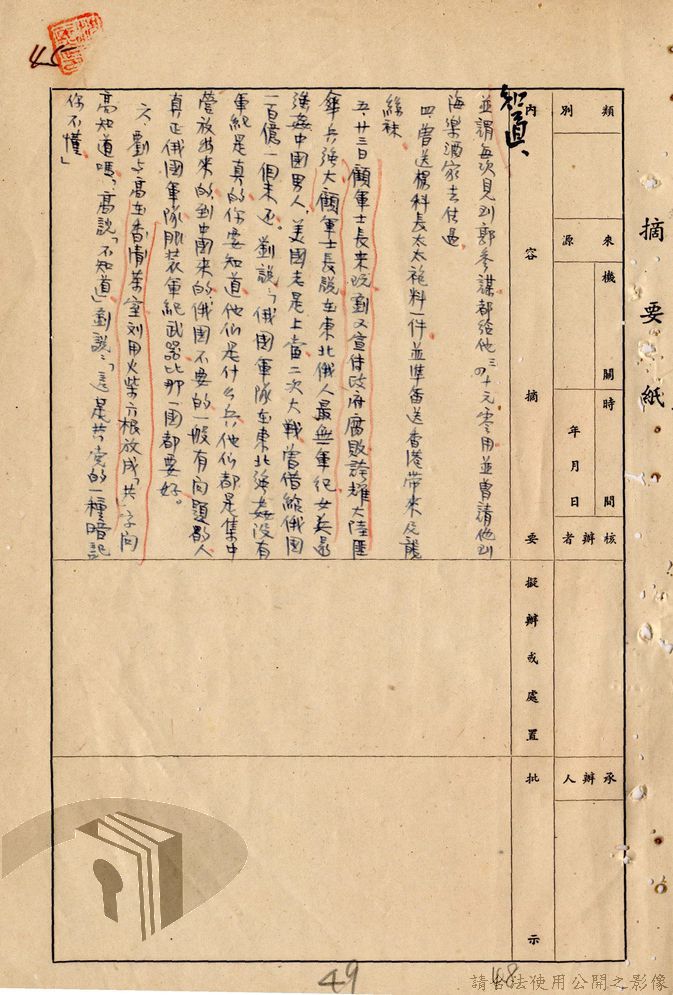 摘要紙
類別
來源
機關
時間
年月日
核辦者
承辦人
內容摘要
擬辦或處置
批示
知道、
並謂每次見到郭參謀都給他三四十元零用並曾請他到
海樂酒家去住過
四、曾送楊科長太太袍料一件並準備送香港帶來尼龍
絲袜
五、廿三日顧軍士長來玩劉又宣傳政府腐敗誇耀大陸匪
傘兵強大顧軍士長說在東北俄人最無軍紀女兵最
強姦中國男人、美國老是上當二次大戰曾借給俄國
一百億一個未还。劉說：「俄國軍隊在東北強姦沒有
軍紀是真的你要知道他们是什么兵他们都是集中
營放出來的、到中國來的俄国不要的一般有问題的人
真正俄國軍隊服裝軍紀武器比那一國都要好。
六、劉与高在香情茶室刘用火柴六根放成「共」字问
高知道嗎、高說「不知道」劉說：「這是共党的一種暗記
你不懂」
45
49
48
請合法使用公開之影像